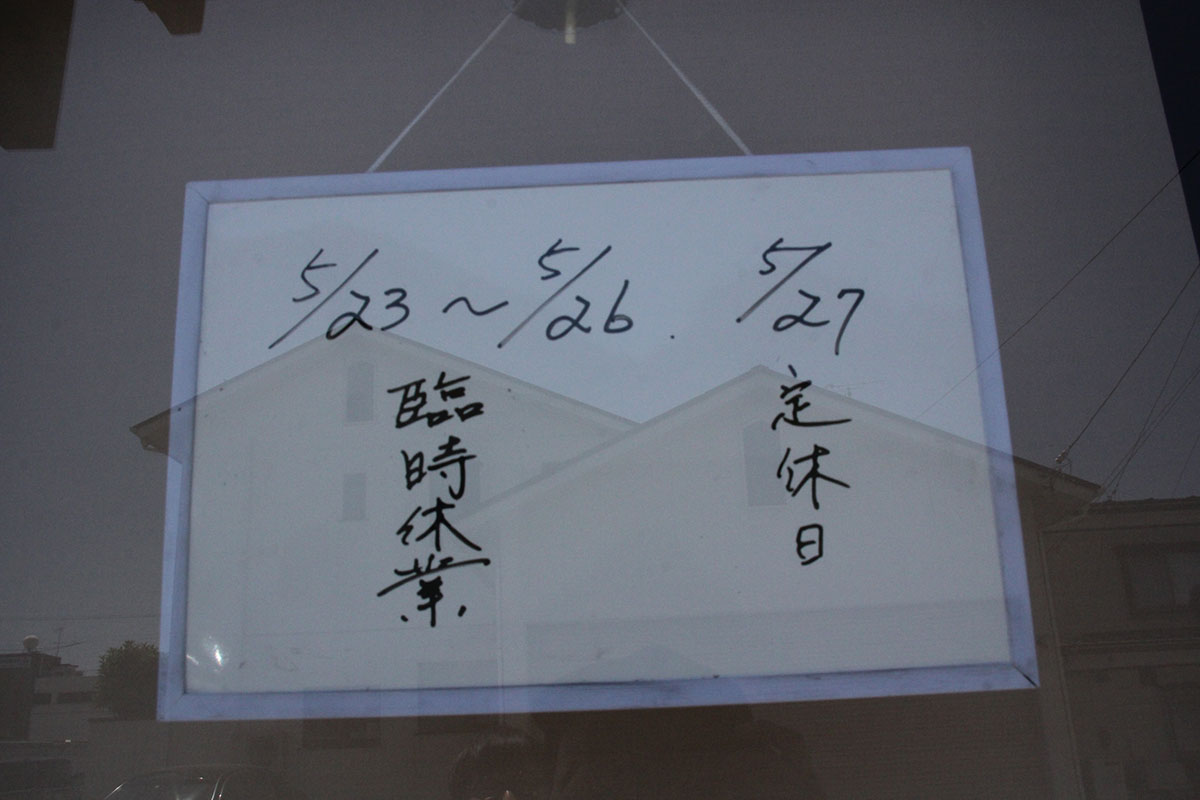 5/23～5/26. 5/27
臨時休業
定休日